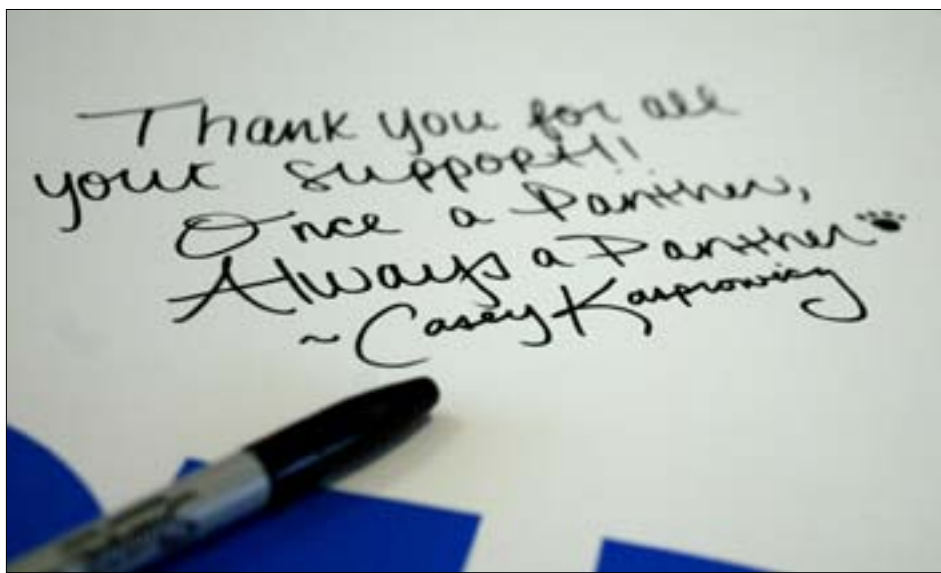 Thank you for all
your support!!
Once a Panther,
Always a Panther
~Casey Kasprowicz